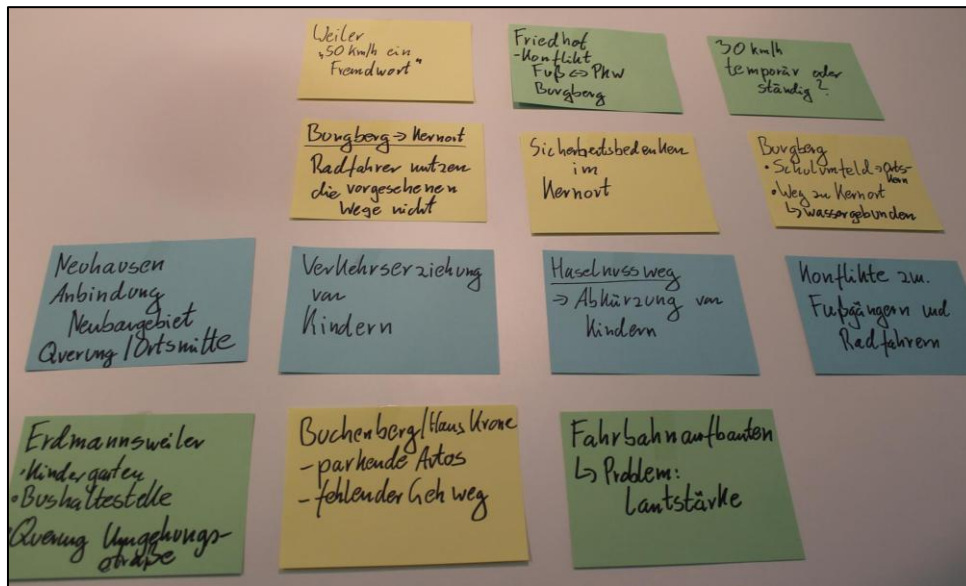 Weiler
„50 km/h ein
Fremdwort"
Friedhof
-Konflikt
Fuß ⇔ Pkw
Burgberg
30 km/h
temporär oder
ständig?
Burgberg → Kernort
Radfahrer nutzen
die vorgesehenen
Wege nicht
Sicherheitsbedenken
im
Kernort
Burgberg
• Schulumfeld → Orts-
kern
• Weg zu Kernort
↳ wassergebunden
Neuhausen
Anbindung
Neubaugebiet
Querung / Ortsmitte
Verkehrserziehung
von
Kindern
Haselnussweg
⇒ Abkürzung von
Kindern
Konflikte zw.
Fußgängern und
Radfahrern
Erdmannsweiler
• Kindergarten
• Bushaltestelle
• Querung Umgehungs-
straße
Buchenberg/Haus Krone
- parkende Autos
- fehlender Gehweg
Fahrbahnaufbauten
↳ Problem:
Lautstärke